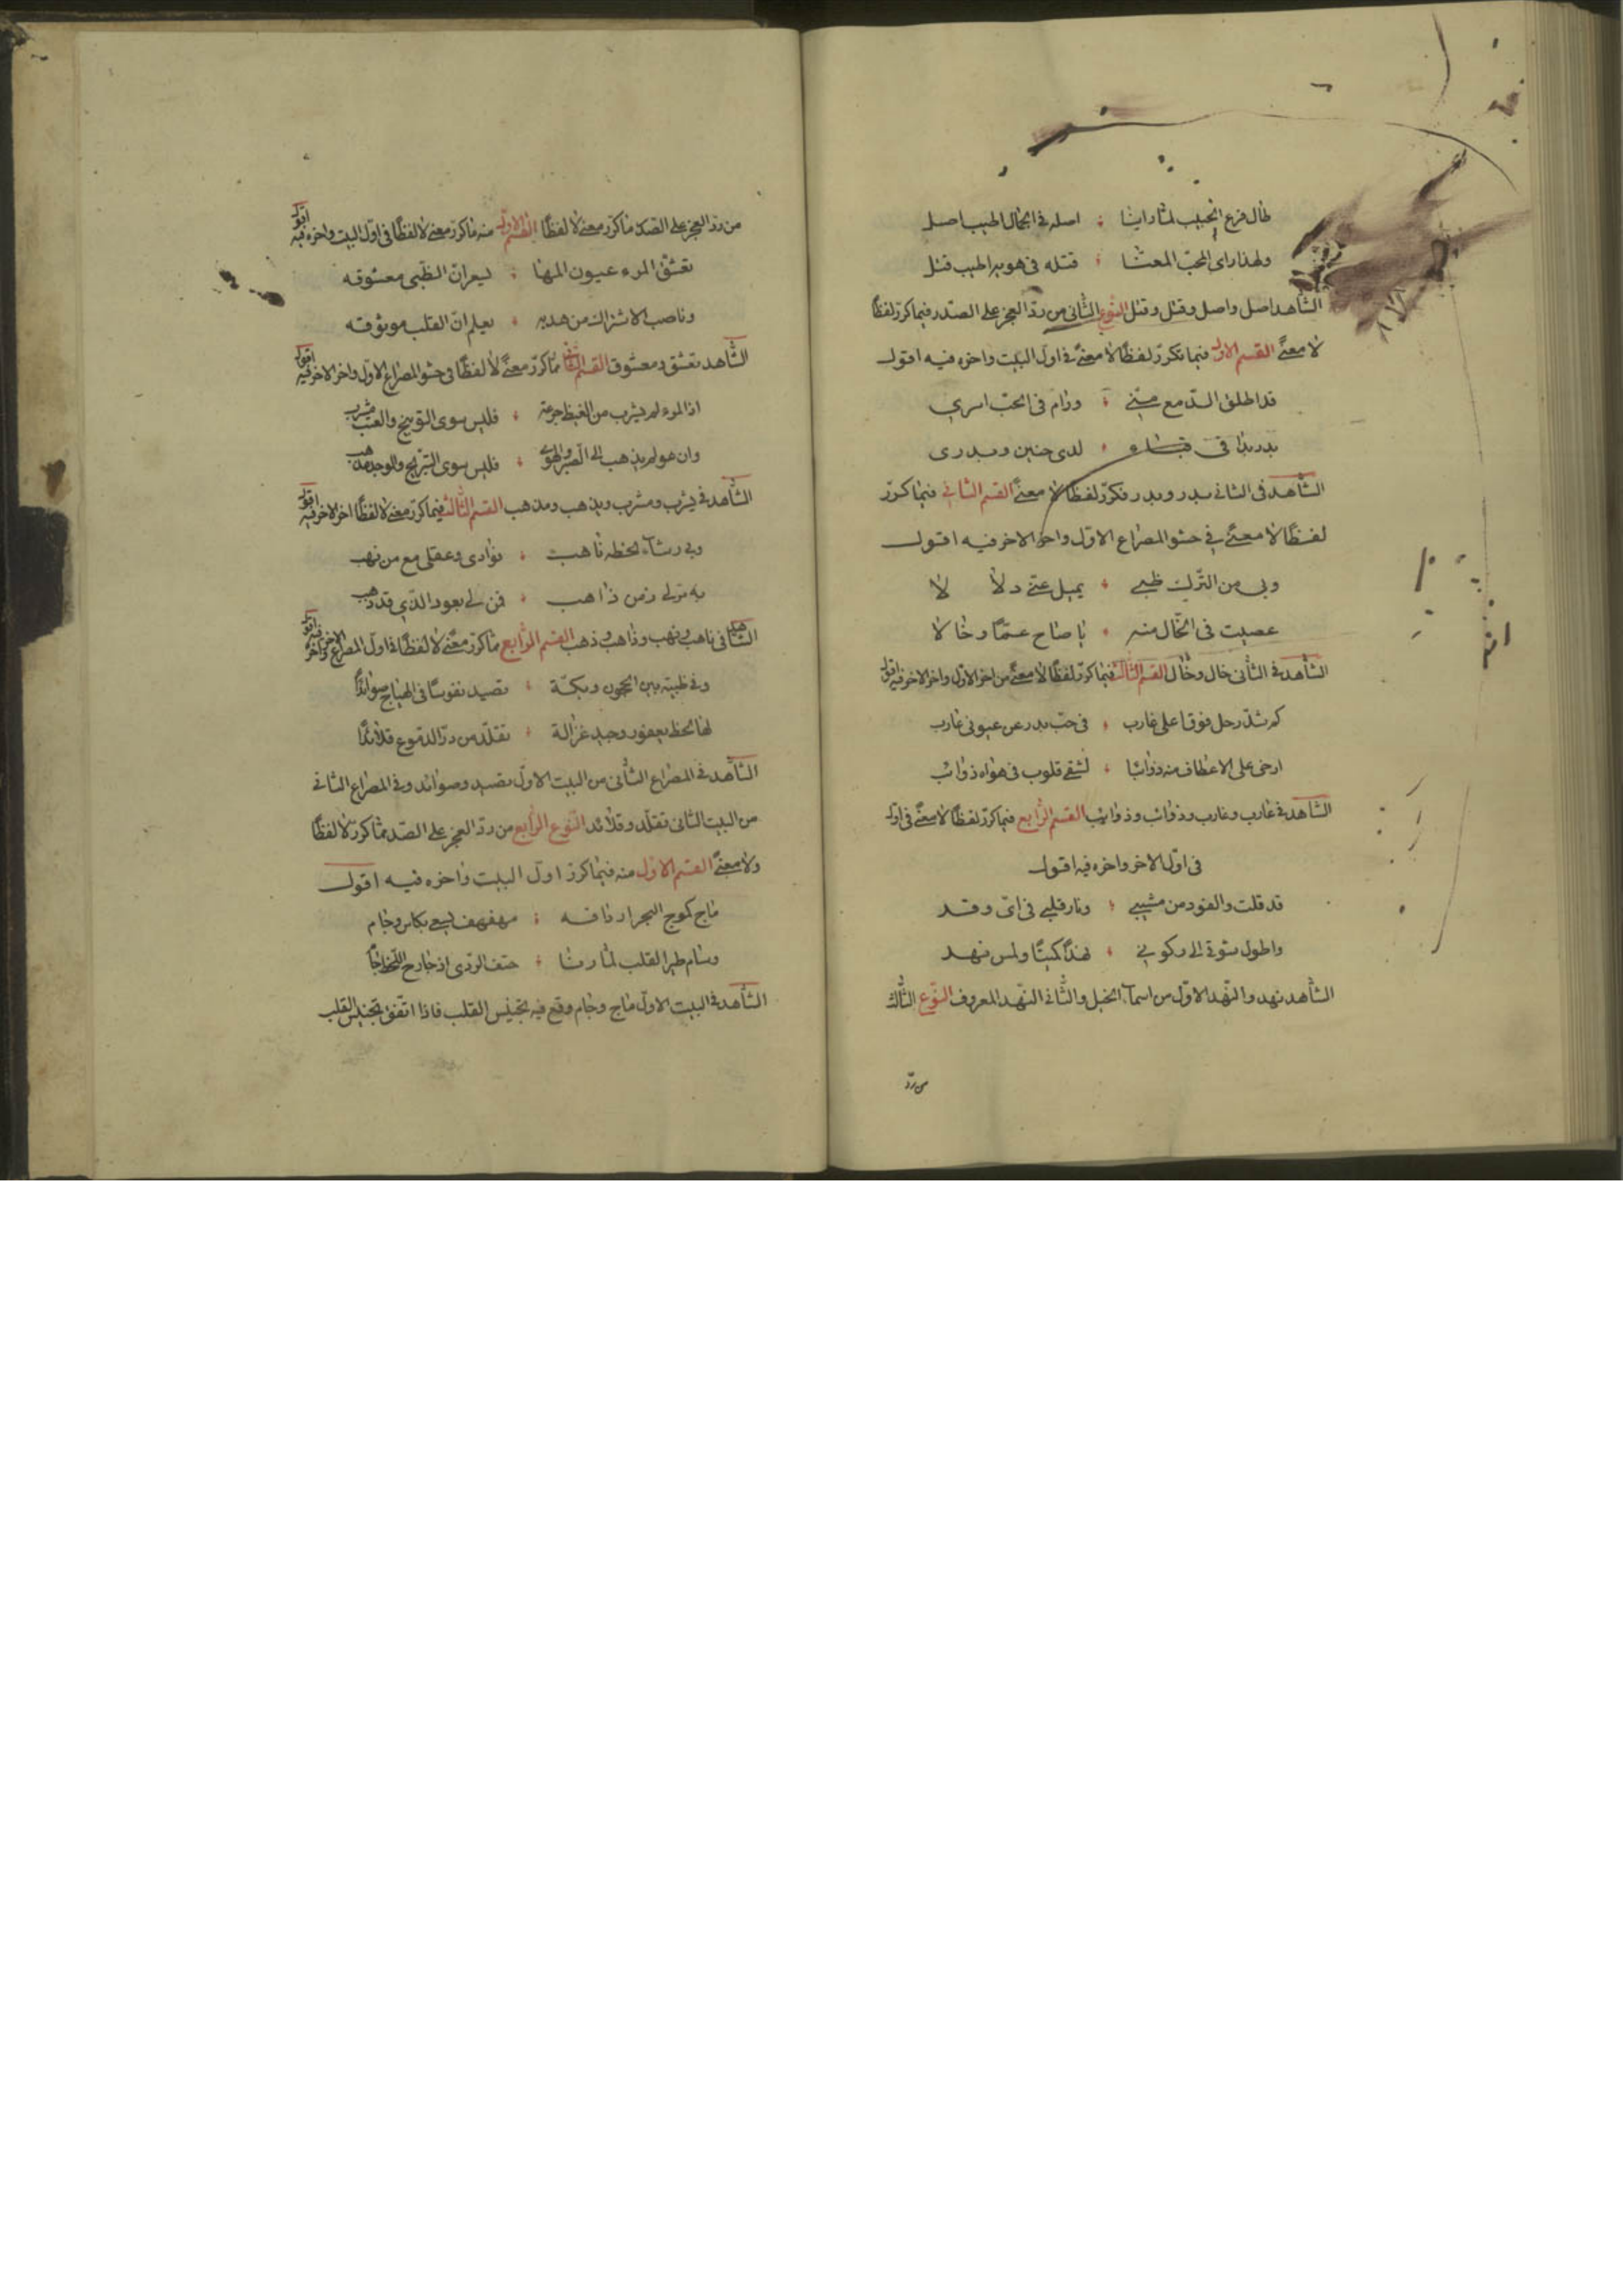 طال فرع الحبيب لما راينا ؛ اصله في الجمال اطيب اصل
ولهذا راى المحب المعنا ؛ قتله في هوى الحبيب قتل
الشاهد اصل واصل وقتل وقتل النوع الثاني من رد العجز على الصدر فيما كرر لفظا
لا معنى القسم الاول فيما تكرر لفظا لا معنى في اول البيت واخره فيه اقول
قد اطلق الدمع مني ؛ ورام في الحب اسري
بدر بدا في ؛ لدى حنين وبدري
الشاهد في الثاني ببدر وبدر فكرر لفظا لا معنى القسم الثاني فيما كرر
لفظا لا معنى في حشو المصراع الاول واخر الاخر فيه اقول
وبي من الترك ظبي ؛ يميل عني دلالا
عصيت في الخال منه ؛ يا صاح عما وخالا
الشاهد في الثاني خال وخال القسم الثالث فيما كرر لفظا لا معنى من اخر الاول واخر الاخر فيه اقول
كم شد رحل فوقا على غارب ؛ في حب بدر عن عيوني غارب
ارخى على الاعطاف منه ذوائبا ؛ لشقي قلوب في هواه ذوائب
الشاهد في غارب وغارب وذوائب وذوائب القسم الرابع فيما كرر لفظا لا معنى في اول
في اول الاخر واخره فيه اقول
قد قلت والفود من مشيبي ؛ ونار قلبي في اي وقد
واطول شوقي الى ركوبي ؛ نهدا كميتا ولمس نهد
الشاهد نهد والنهد الاول من اسماء الخيل والثاني النهد المعروف النوع الثالث
من رد
من رد العجز على الصدر ما كرر معنى لا لفظا القسم الاول منه ما كرر معنى لا لفظا في اول البيت واخره فيه اقول
تعشق المرء عيون المها ؛ ليعران الظبي معشوقه
وناصب الاشراك من هدبه ؛ يعلم ان القلب موثوقه
الشاهد تعشق ومعشوق القسم الثاني ما كرر معنى لا لفظا في حشو المصراع الاول واخر الاخر فيه اقول
اذا المرء لم يشرب من الغيظ جرعة ؛ فليس سوى التوبيخ والعتب مشرب
وان هو لم يذهب الى الصبر والهوى ؛ فليس سوى التبريح والوجد مذهب
الشاهد في يشرب ومشرب ويذهب ومذهب القسم الثالث فيما كرر معنى لا لفظا اخر الاخر فيه اقول
وبي رشاء لحظه ناهب ؛ فوادي وعقلي مع من نهب
به مر لي زمن ذاهب ؛ فمن لي بعود الذي قد ذهب
الشاهد في ناهب ونهب وذاهب وذهب القسم الرابع ما كرر معنى لا لفظا في اول المصراع الاخر واخره فيه اقول
وفي ظبية بين الحجون وبكة ؛ تصيد نفوسا في الهياج صوائدا
لها لحظ يعفور وجيد غزالة ؛ تقلد من در الدموع قلائدا
الشاهد في المصراع الثاني من البيت الاول تصيد وصوائد وفي المصراع الثاني
من البيت الثاني تقلد وقلائد النوع الرابع من رد العجز على الصدر مما كرر لا لفظا
ولا معنى القسم الاول منه فيما كرر اول البيت واخره فيه اقول
ماج كموج البحر اردافه ؛ مهفهف يسعى بكاس وجام
وسام طير القلب لما رنا ؛ حتف الردى اذ جارح اللحظ
الشاهد في البيت الاول ماج وجام وقع فيه تجنيس القلب فاذا اتفق تجنيس القلب